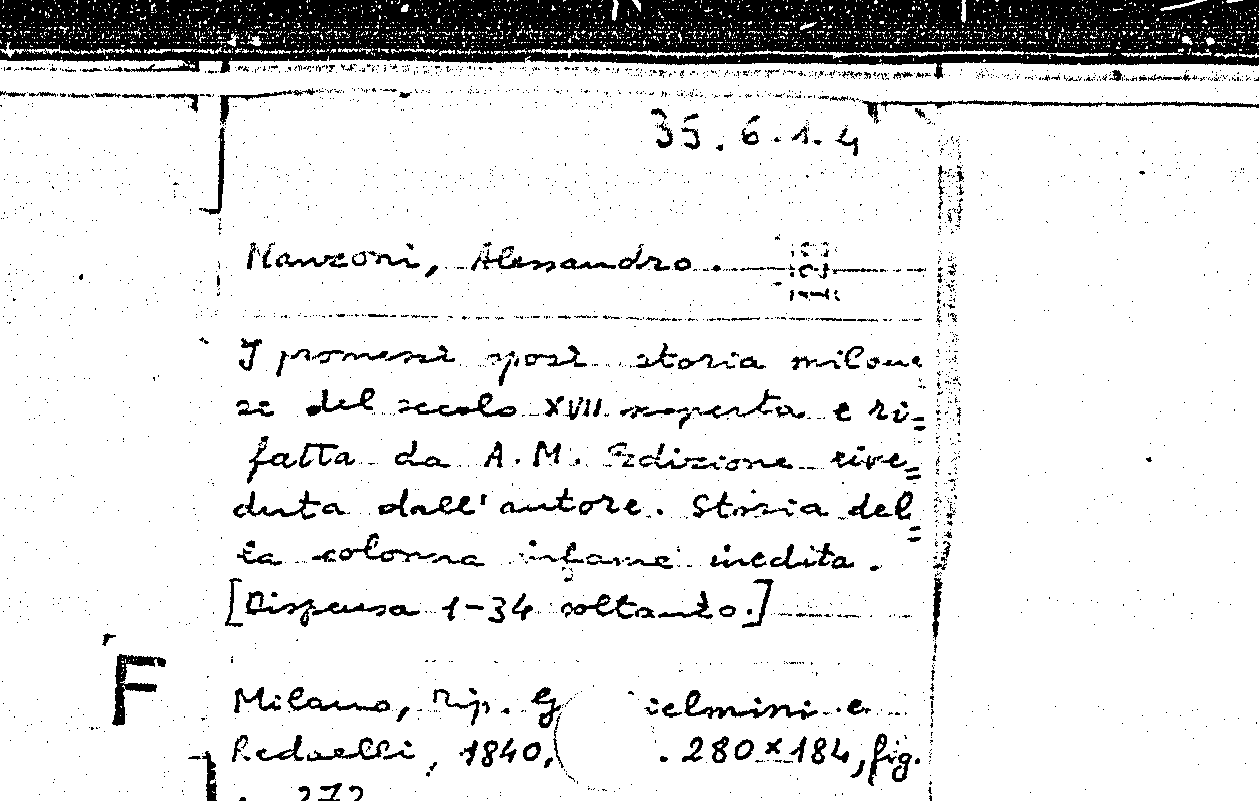 35.6.1.4
Manzoni, Alessandro.
I promessi sposi storia milane
se del secolo XVII scoperta e ri=
fatta da A.M. Edizione rive=
duta dall'autore. Storia del=
la colonna infame inedita.
[Dispensa 1-34 soltanto.]
F
Milano, Tip. G ielmini e
Redaelli, 1840, . 280×184, fig.
. 272